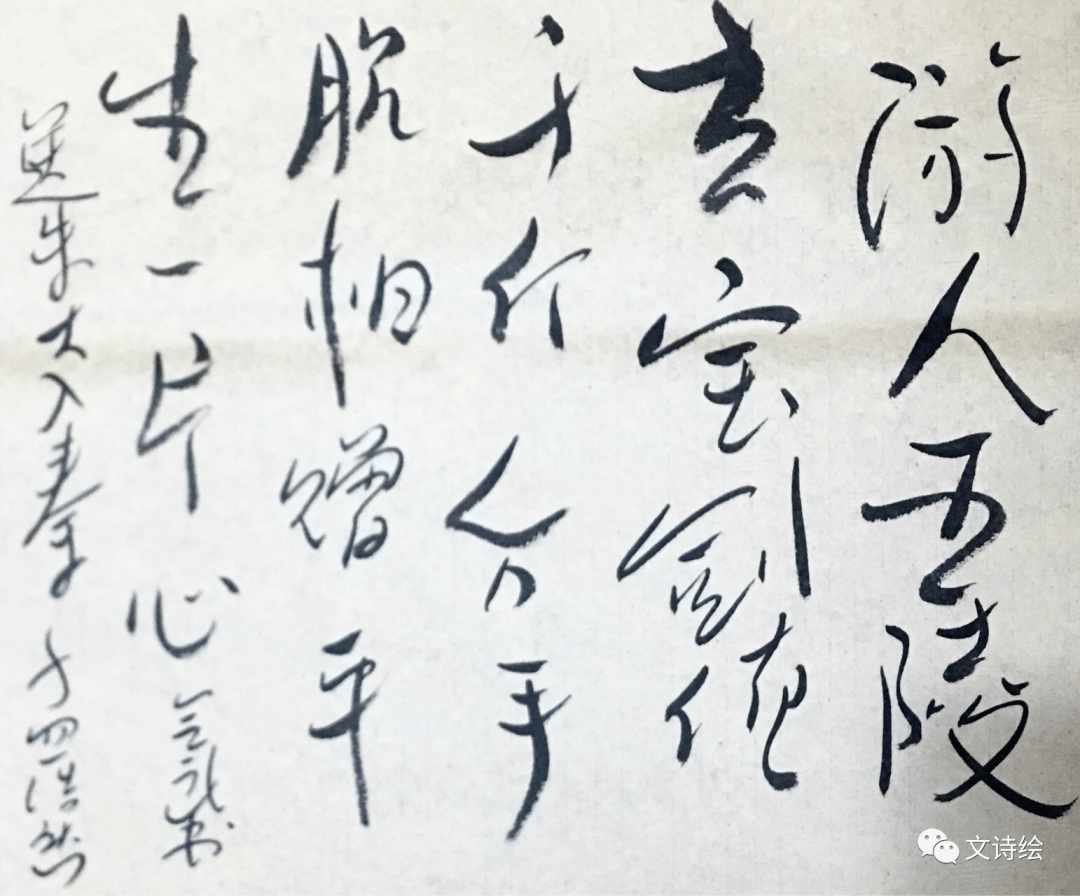 游人五陵
去宝剑值
千行分手
脱相赠平
生一片心 书
送朱大入秦 孟浩然
文诗绘